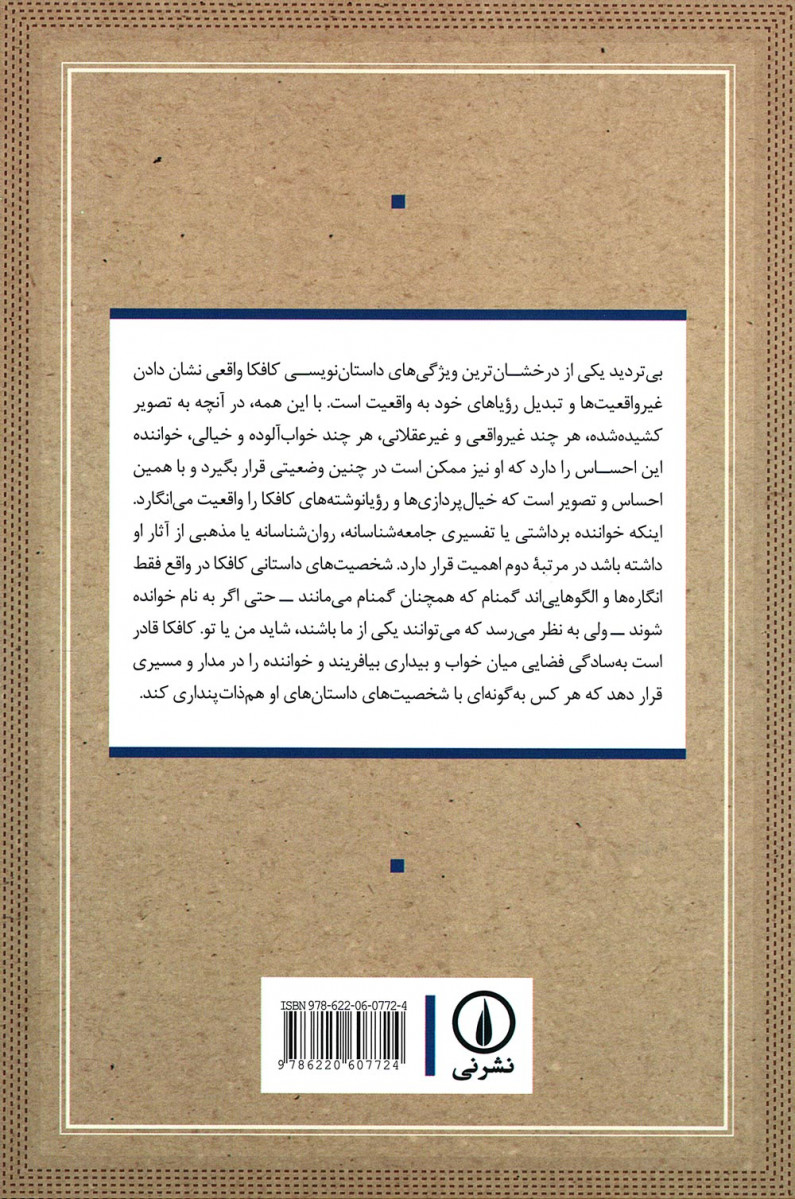 بی‌تردید یکی از درخشان‌ترین ویژگی‌های داستان‌نویسی کافکا واقعی نشان دادن
غیرواقعیت‌ها و تبدیل رؤیاهای خود به واقعیت است. با این همه، در آنچه به تصویر
کشیده‌شده، هر چند غیرواقعی و غیرعقلانی، هر چند خواب‌آلوده و خیالی، خواننده
این احساس را دارد که او نیز ممکن است در چنین وضعیتی قرار بگیرد و با همین
احساس و تصویر است که خیال‌پردازی‌ها و رؤیانوشته‌های کافکا را واقعیت می‌انگارد.
اینکه خواننده برداشتی یا تفسیری جامعه‌شناسانه، روان‌شناسانه یا مذهبی از آثار او
داشته باشد در مرتبهٔ دوم اهمیت قرار دارد. شخصیت‌های داستانی کافکا در واقع فقط
انگاره‌ها و الگوهایی‌اند گمنام که همچنان گمنام می‌مانند ــ حتی اگر به نام خوانده
شوند ــ ولی به نظر می‌رسد که می‌توانند یکی از ما باشند، شاید من یا تو. کافکا قادر
است به‌سادگی فضایی میان خواب و بیداری بیافریند و خواننده را در مدار و مسیری
قرار دهد که هر کس به‌گونه‌ای با شخصیت‌های داستان‌های او هم‌ذات‌پنداری کند.
ISBN 978-622-06-0772-4
9 786220 607724
نشرنی